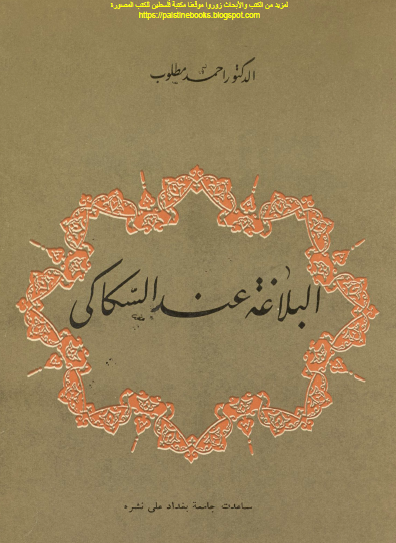 لمزيد من الكتب والأبحاث زوروا موقعنا مكتبة فلسطين للكتب المصورة
https://palstinebooks.blogspot.com
الدكتور احمد مطلوب
البلاغة عند السكاكي
ساعدت جامعة بغداد على نشره